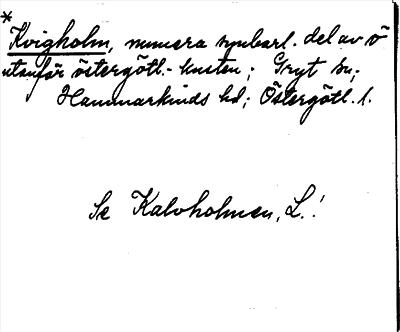 *
Kvigholm, numera synbarl. del av ö
utanför östergötl.-kusten; Gryt sn;
Hammarkinds hd; Östergötl. l.
Se Kalvholmen, L.!